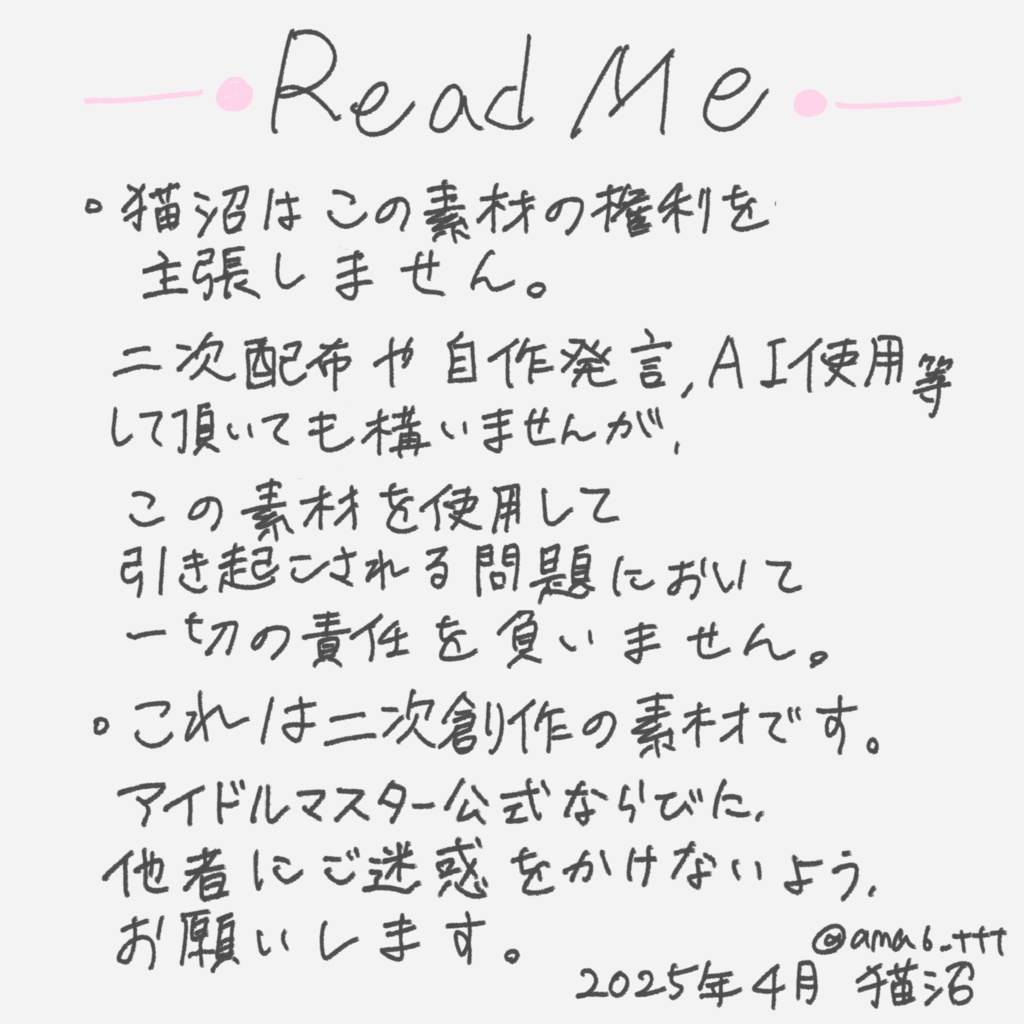 Read Me
。猫沼はこの素材の権利を
主張しません。
二次配布や自作発言,AI使用等
して頂いても構いませんが,
この素材を使用して
引き起こされる問題において
一切の責任を負いません。
。これは二次創作の素材です。
アイドルマスター公式ならびに,
他者にご迷惑をかけないよう,
お願いします。
@ama6_ttt
2025年4月 猫沼